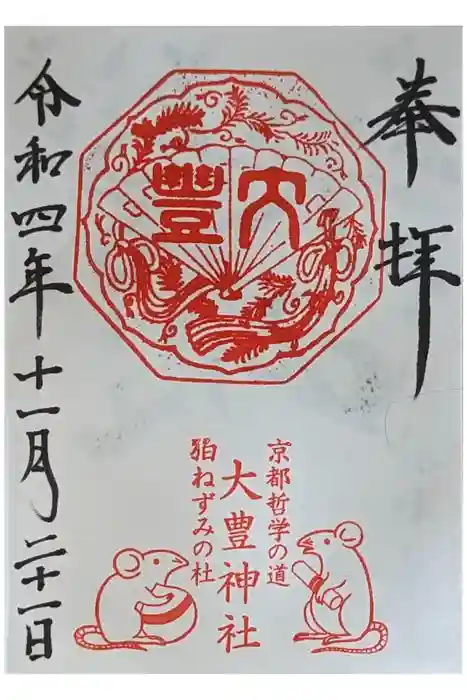 奉拝
大豊
京都哲学の道
大豊神社
狛ねずみの社
令和四年十一月二十一日